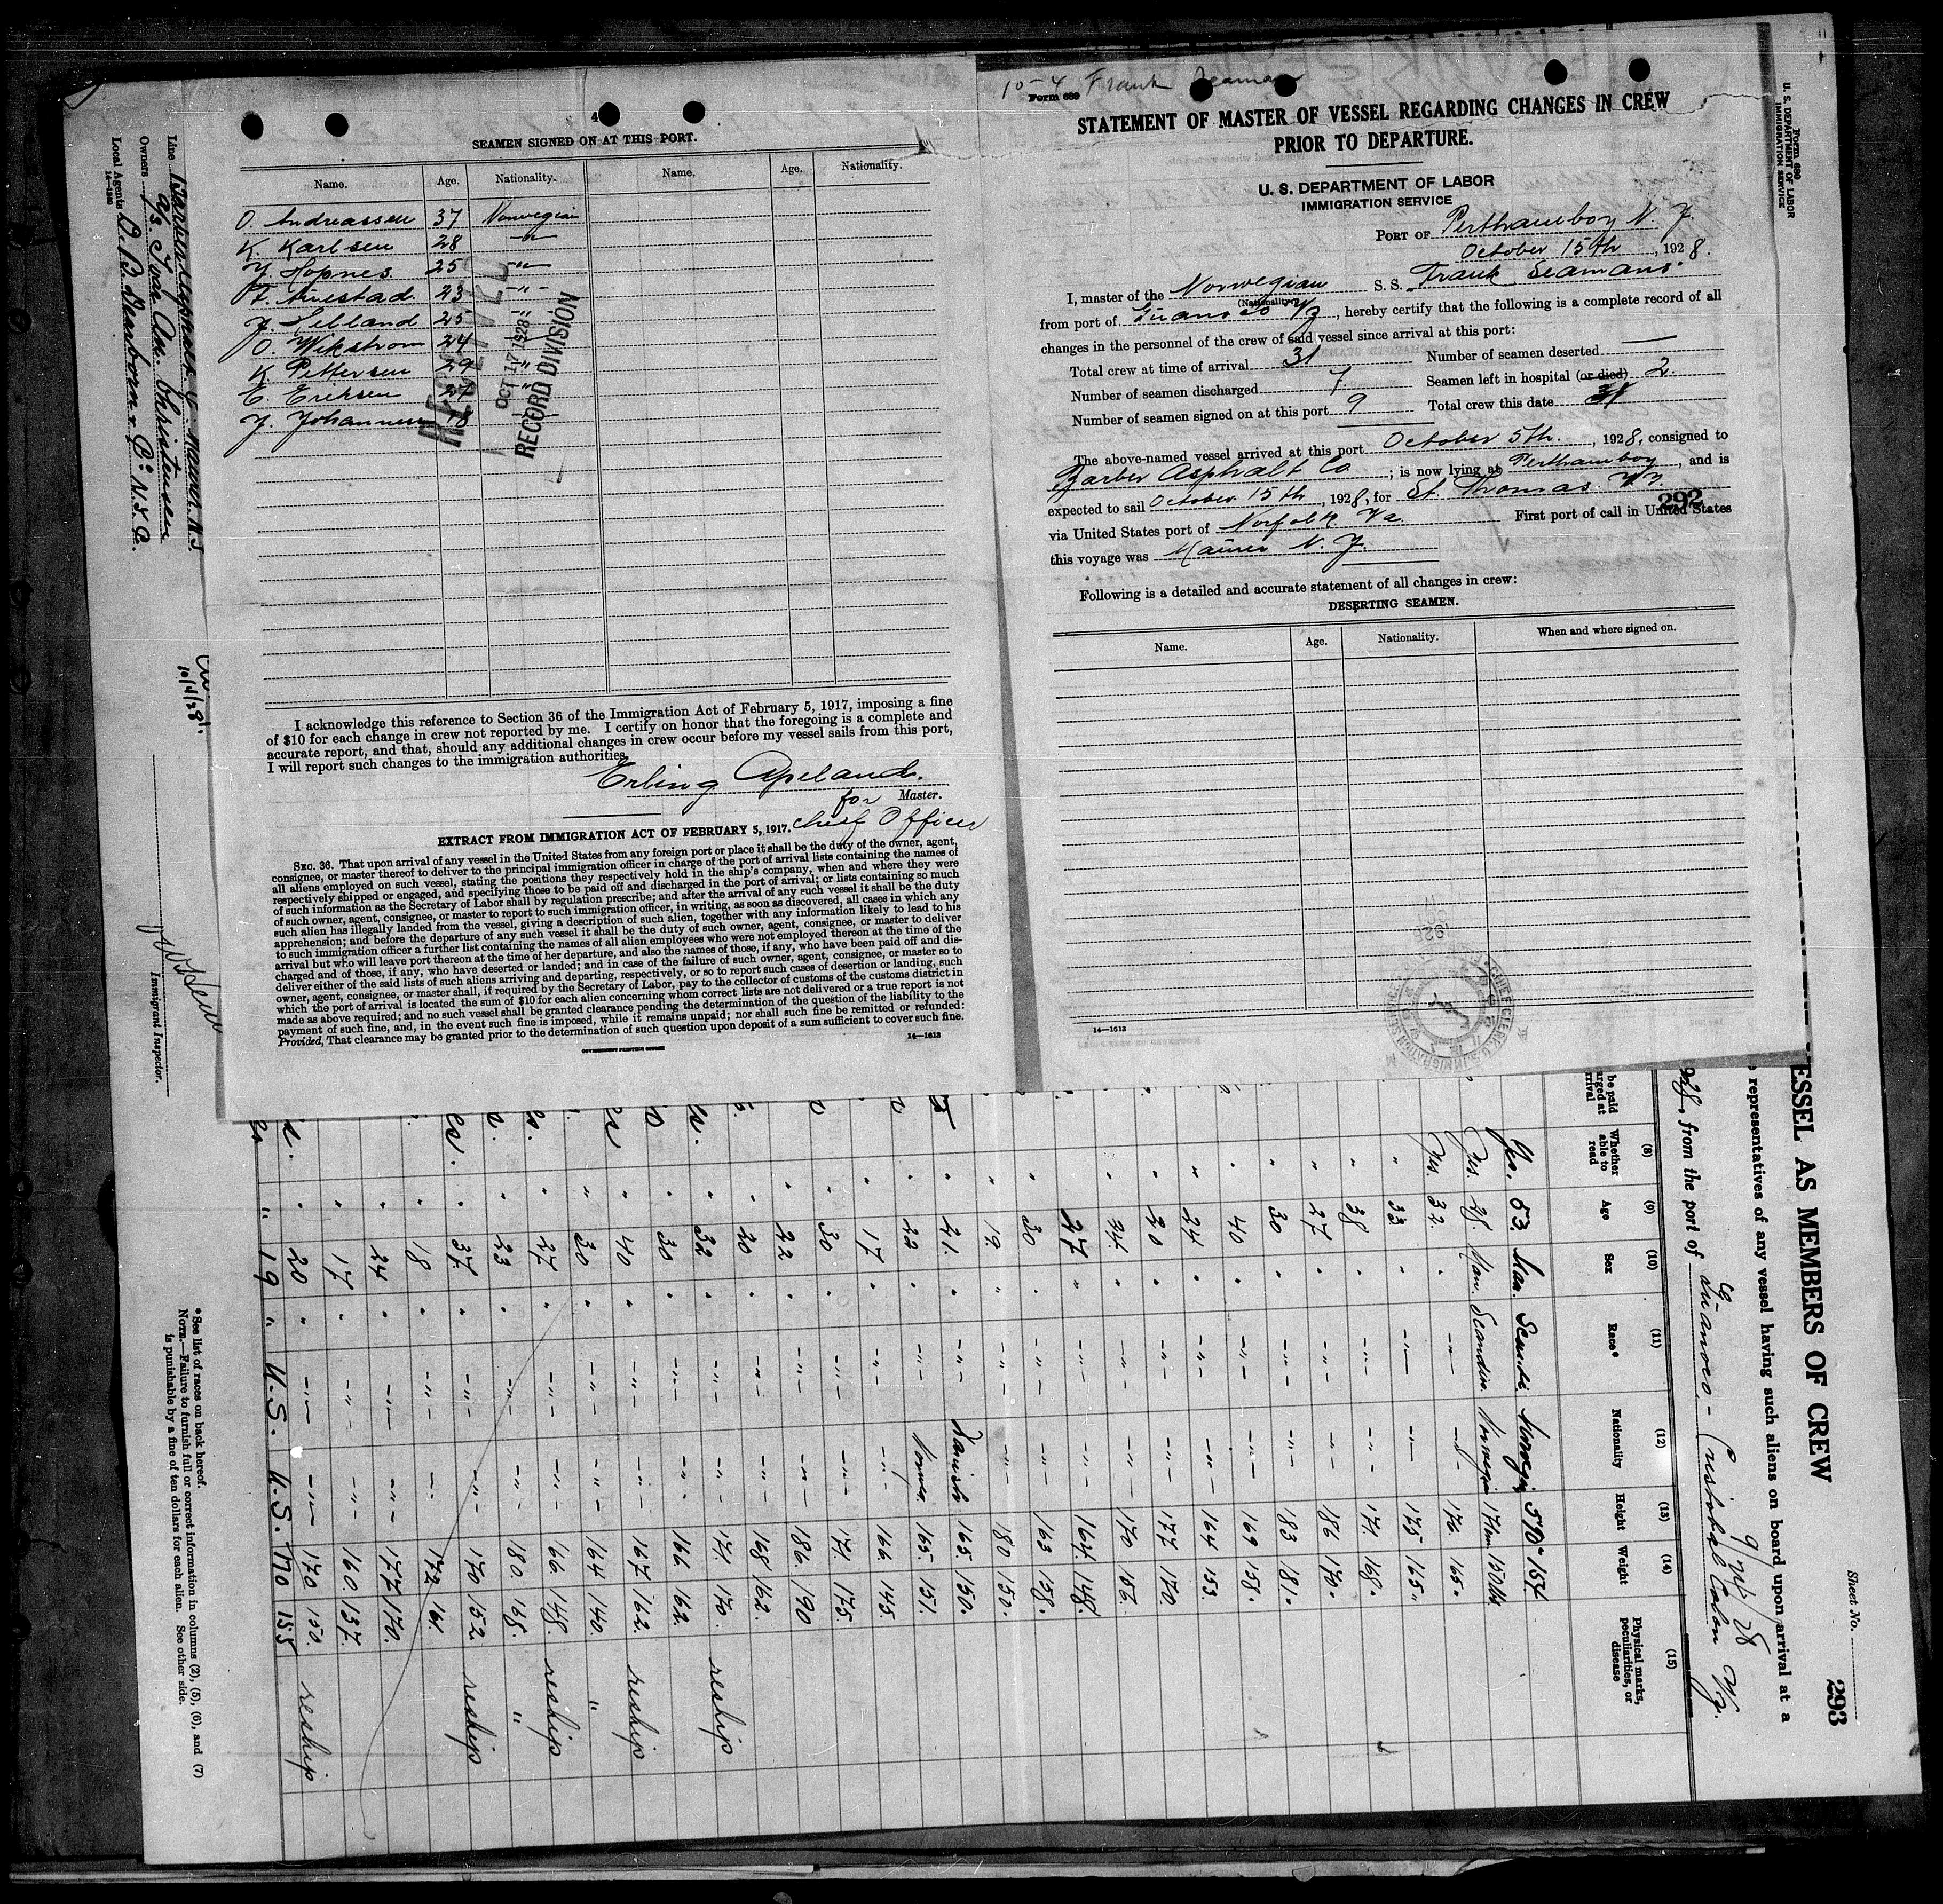 4
SEAMEN SIGNED ON AT THIS PORT.
Name. Age. Nationality. Name. Age. Nationality.
O. Andreassen 37 Norwegian
K. Karlsen 28 -"-
Y. Hopnes 25 -"-
23 -"-
25 -"-
O. Wikstrom 24 -"-
K. Pettersen 29 -"-
E. Eriksen
Y. Johannesen 18
RECEIVED
OCT 17 1928
RECORD DIVISION
I acknowledge this reference to Section 36 of the Immigration Act of February 5, 1917, imposing a fine
of $10 for each change in crew not reported by me. I certify on honor that the foregoing is a complete and
accurate report, and that, should any additional changes in crew occur before my vessel sails from this port,
I will report such changes to the immigration authorities.
Erling Apeland.
for Master.
Chief Officer
EXTRACT FROM IMMIGRATION ACT OF FEBRUARY 5, 1917.
SEC. 36. That upon arrival of any vessel in the United States from any foreign port or place it shall be the duty of the owner, agent,
consignee, or master thereof to deliver to the principal immigration officer in charge of the port of arrival lists containing the names of
all aliens employed on such vessel, stating the positions they respectively hold in the ship's company, when and where they were
respectively shipped or engaged, and specifying those to be paid off and discharged in the port of arrival; or lists containing so much
of such information as the Secretary of Labor shall by regulation prescribe; and after the arrival of any such vessel it shall be the duty
of such owner, agent, consignee, or master to report to such immigration officer, in writing, as soon as discovered, all cases in which any
such alien has illegally landed from the vessel, giving a description of such alien, together with any information likely to lead to his
apprehension; and before the departure of any such vessel it shall be the duty of such owner, agent, consignee, or master to deliver
to such immigration officer a further list containing the names of all alien employees who were not employed thereon at the time of the
arrival but who will leave port thereon at the time of her departure, and also the names of those, if any, who have been paid off and dis-
charged and of those, if any, who have deserted or landed; and in case of the failure of such owner, agent, consignee, or master so to
deliver either of the said lists of such aliens arriving and departing, respectively, or so to report such cases of desertion or landing, such
owner, agent, consignee, or master shall, if required by the Secretary of Labor, pay to the collector of customs of the customs district in
which the port of arrival is located the sum of $10 for each alien concerning whom correct lists are not delivered or a true report is not
made as above required; and no such vessel shall be granted clearance pending the determination of the question of the liability to the
payment of such fine, and, in the event such fine is imposed, while it remains unpaid; nor shall such fine be remitted or refunded:
Provided, That clearance may be granted prior to the determination of such question upon deposit of a sum sufficient to cover such fine.
14—1613
GOVERNMENT PRINTING OFFICE
10-4 Frank Seaman
Form 689
STATEMENT OF MASTER OF VESSEL REGARDING CHANGES IN CREW
PRIOR TO DEPARTURE.
U. S. DEPARTMENT OF LABOR
IMMIGRATION SERVICE
PORT OF Perthamboy N. J.
October 15th, 1928.
I, master of the Norwegian S. S. Frank Seamans.
(Nationality)
from port of Guanoco Vz, hereby certify that the following is a complete record of all
changes in the personnel of the crew of said vessel since arrival at this port:
Total crew at time of arrival 31 Number of seamen deserted —
Number of seamen discharged 7. Seamen left in hospital (or died) 2.
Number of seamen signed on at this port 9 Total crew this date 31
The above-named vessel arrived at this port October 5th., 1928, consigned to
Barber Asphalt Co; is now lying at Perthamboy, and is
expected to sail October 15th, 1928, for St. Thomas
292
via United States port of Norfolk Va First port of call in United States
this voyage was Maurer N. J.
Following is a detailed and accurate statement of all changes in crew:
DESERTING SEAMEN.
Name. Age. Nationality. When and where signed on.
14—1613
Form 680
U. S. DEPARTMENT OF LABOR
IMMIGRATION SERVICE
Line
Owners As. Tode An. Christensen
Local Agents O. B. Dearborn & Co. N.Y.C.
14-1240
10/4/28
Immigrant Inspector.
Sheet No.
293
ESSEL AS MEMBERS OF CREW
representatives of any vessel having such aliens on board upon arrival at a
28, from the port of Guanoco - Cristobal Colon Vz.
9/24/28
be paid
arged at
rrival
(8) Whether able to read
(9) Age
(10) Sex
(11) Race*
(12) Nationality
(13) Height
(14) Weight
(15) Physical marks, peculiarities, or disease
Yes. 53. Man. Scandi. Norwegian 5'10" 154.
Yes. 28. Man. Scandin. Norwegian 171 cm 150 lbs
Yes. 32. " -"- -"- 176 165.
" 33 " -"- -"- 175 165
" 38 " -"- -"- 171. 160.
" 27 " -"- -"- 186 170.
" 30 " -"- -"- 183 181.
" 40 " -"- -"- 169 158.
" 24 " -"- -"- 164 153.
" 20 " -"- -"- 177 170.
" 34. " -"- -"- 170 156.
" 47 " -"- -"- 164. 148.
" 30 " -"- -"- 163 158.
" 19. " -"- -"- 180 150.
" 21. " -"- Danish 165. 150.
" 22 " -"- Norweg. 165. 151.
" 17. " -"- -"- 166 145.
" 30 " -"- -"- 171. 175.
" 22 " -"- -"- 186. 190
" 20 " -"- -"- 168 162.
" 32 " -"- -"- 171. 170. reship
" 30 " -"- -"- 166 162.
" 40 " -"- -"- 167 162. reship
" 30 " -"- -"- 164 140. "
" 27 " -"- -"- 166 148. reship
" 23 " -"- -"- 180 168. "
" 37. " -"- -"- 170 152. reship
" 18 " -"- -"- 172 161.
" 24 " -"- -"- 177 170.
" 17 " -"- -"- 160 137.
" 20 " -"- -"- 170 150. reship
" 19 " U.S. U.S. 170 155
*See list of races on back hereof.
NOTE.—Failure to furnish full or correct information in columns (2), (5), (6), and (7)
is punishable by a fine of ten dollars for each alien. See other side.